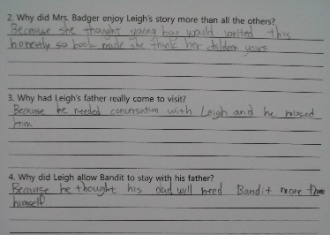 2. Why did Mrs. Badger enjoy Leigh's story more than all the others?
Because she thought young boy would writed this
honestly so book made she think her children years
3. Why had Leigh's father really come to visit?
Because he needed conversation with Leigh and he missed
him
4. Why did Leigh allow Bandit to stay with his father?
Because he thought his dad will need Bandit more than
himself